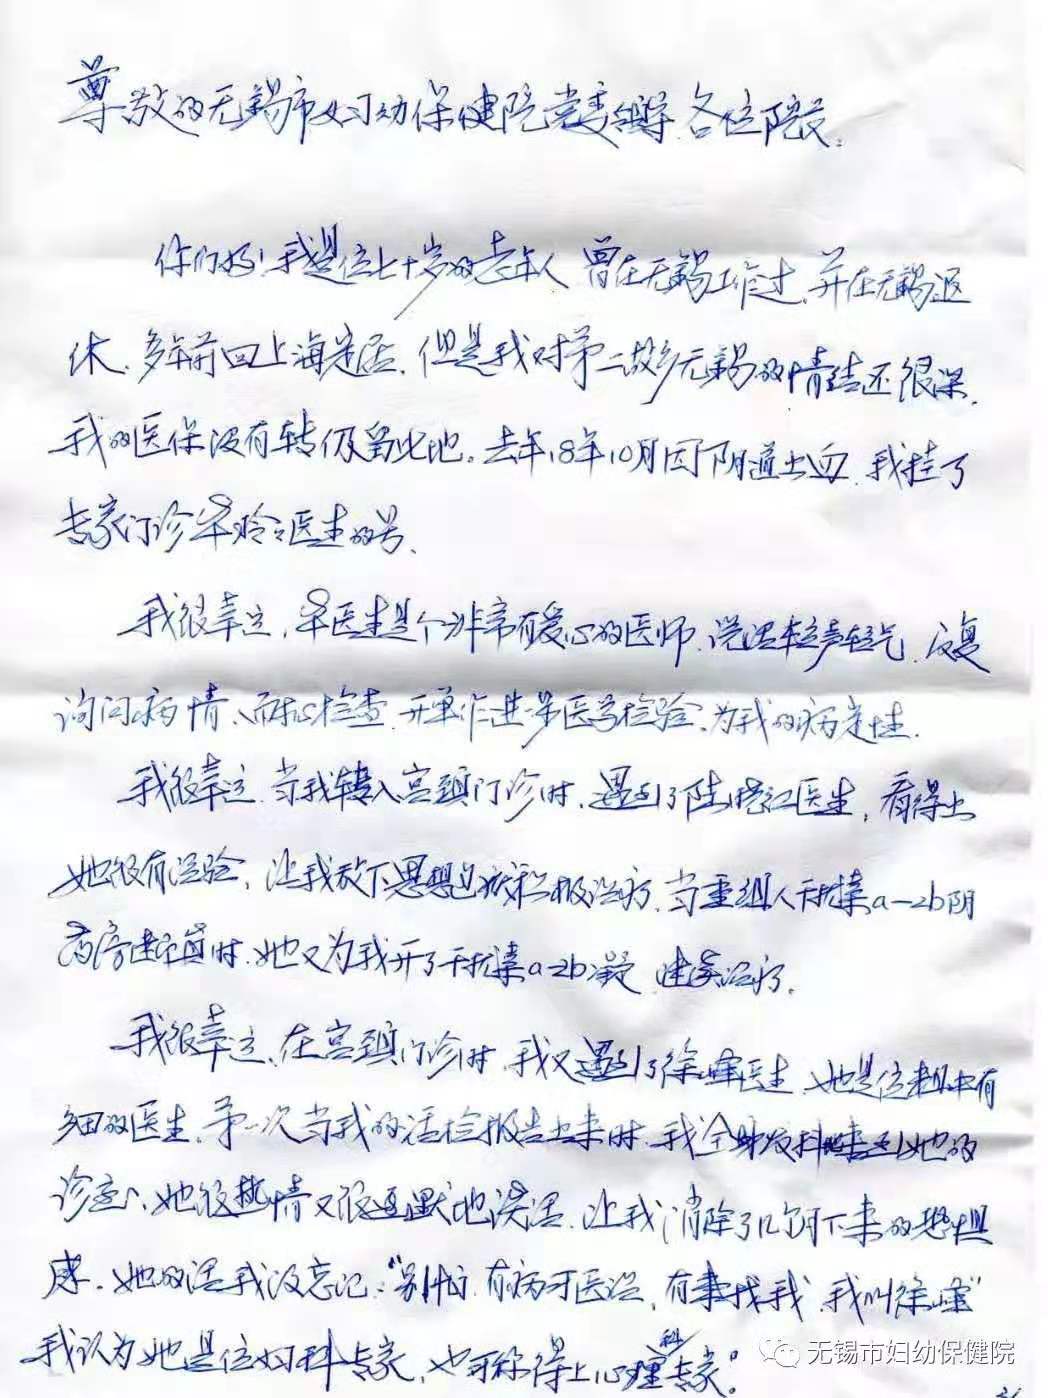 尊敬的无锡市妇幼保健院党委领导.各位院长:
你们好!我是位七十岁的老年人 曾在无锡工作过.并在无锡退
休.多年前回上海定居.但是我对第二故乡无锡的情结还很深.
我的医保没有转仍留此地。去年18年10月因阴道出血.我挂了
专家门诊 医生的号.
我很幸运. 医生是个非常有爱心的医师.说话轻声轻气.反复
询问病情、耐心检查 开单作进一步医学检验.为我的病定性.
我很幸运.当我转入宫颈门诊时.遇到了陆 医生,看得出
她很有经验,让我放下思想包袱积极治疗.当重组人干扰素a-2b阴
道 时.她又为我开了干扰素a2b凝 治疗.
我很幸运.在宫颈门诊时.我又遇到了徐峰医生.她是位粗中有
细的医生.第一次当我的活检报告出来时.我全身发抖来到她的
诊室、她很热情又很幽默地谈话.让我消除了几个月下来的恐惧
感.她的话我没忘记:“别怕.有病可医治,有事找我.我叫徐峰”
我认为她是位妇科专家,也可称得上心理科专家。
无锡市妇幼保健院